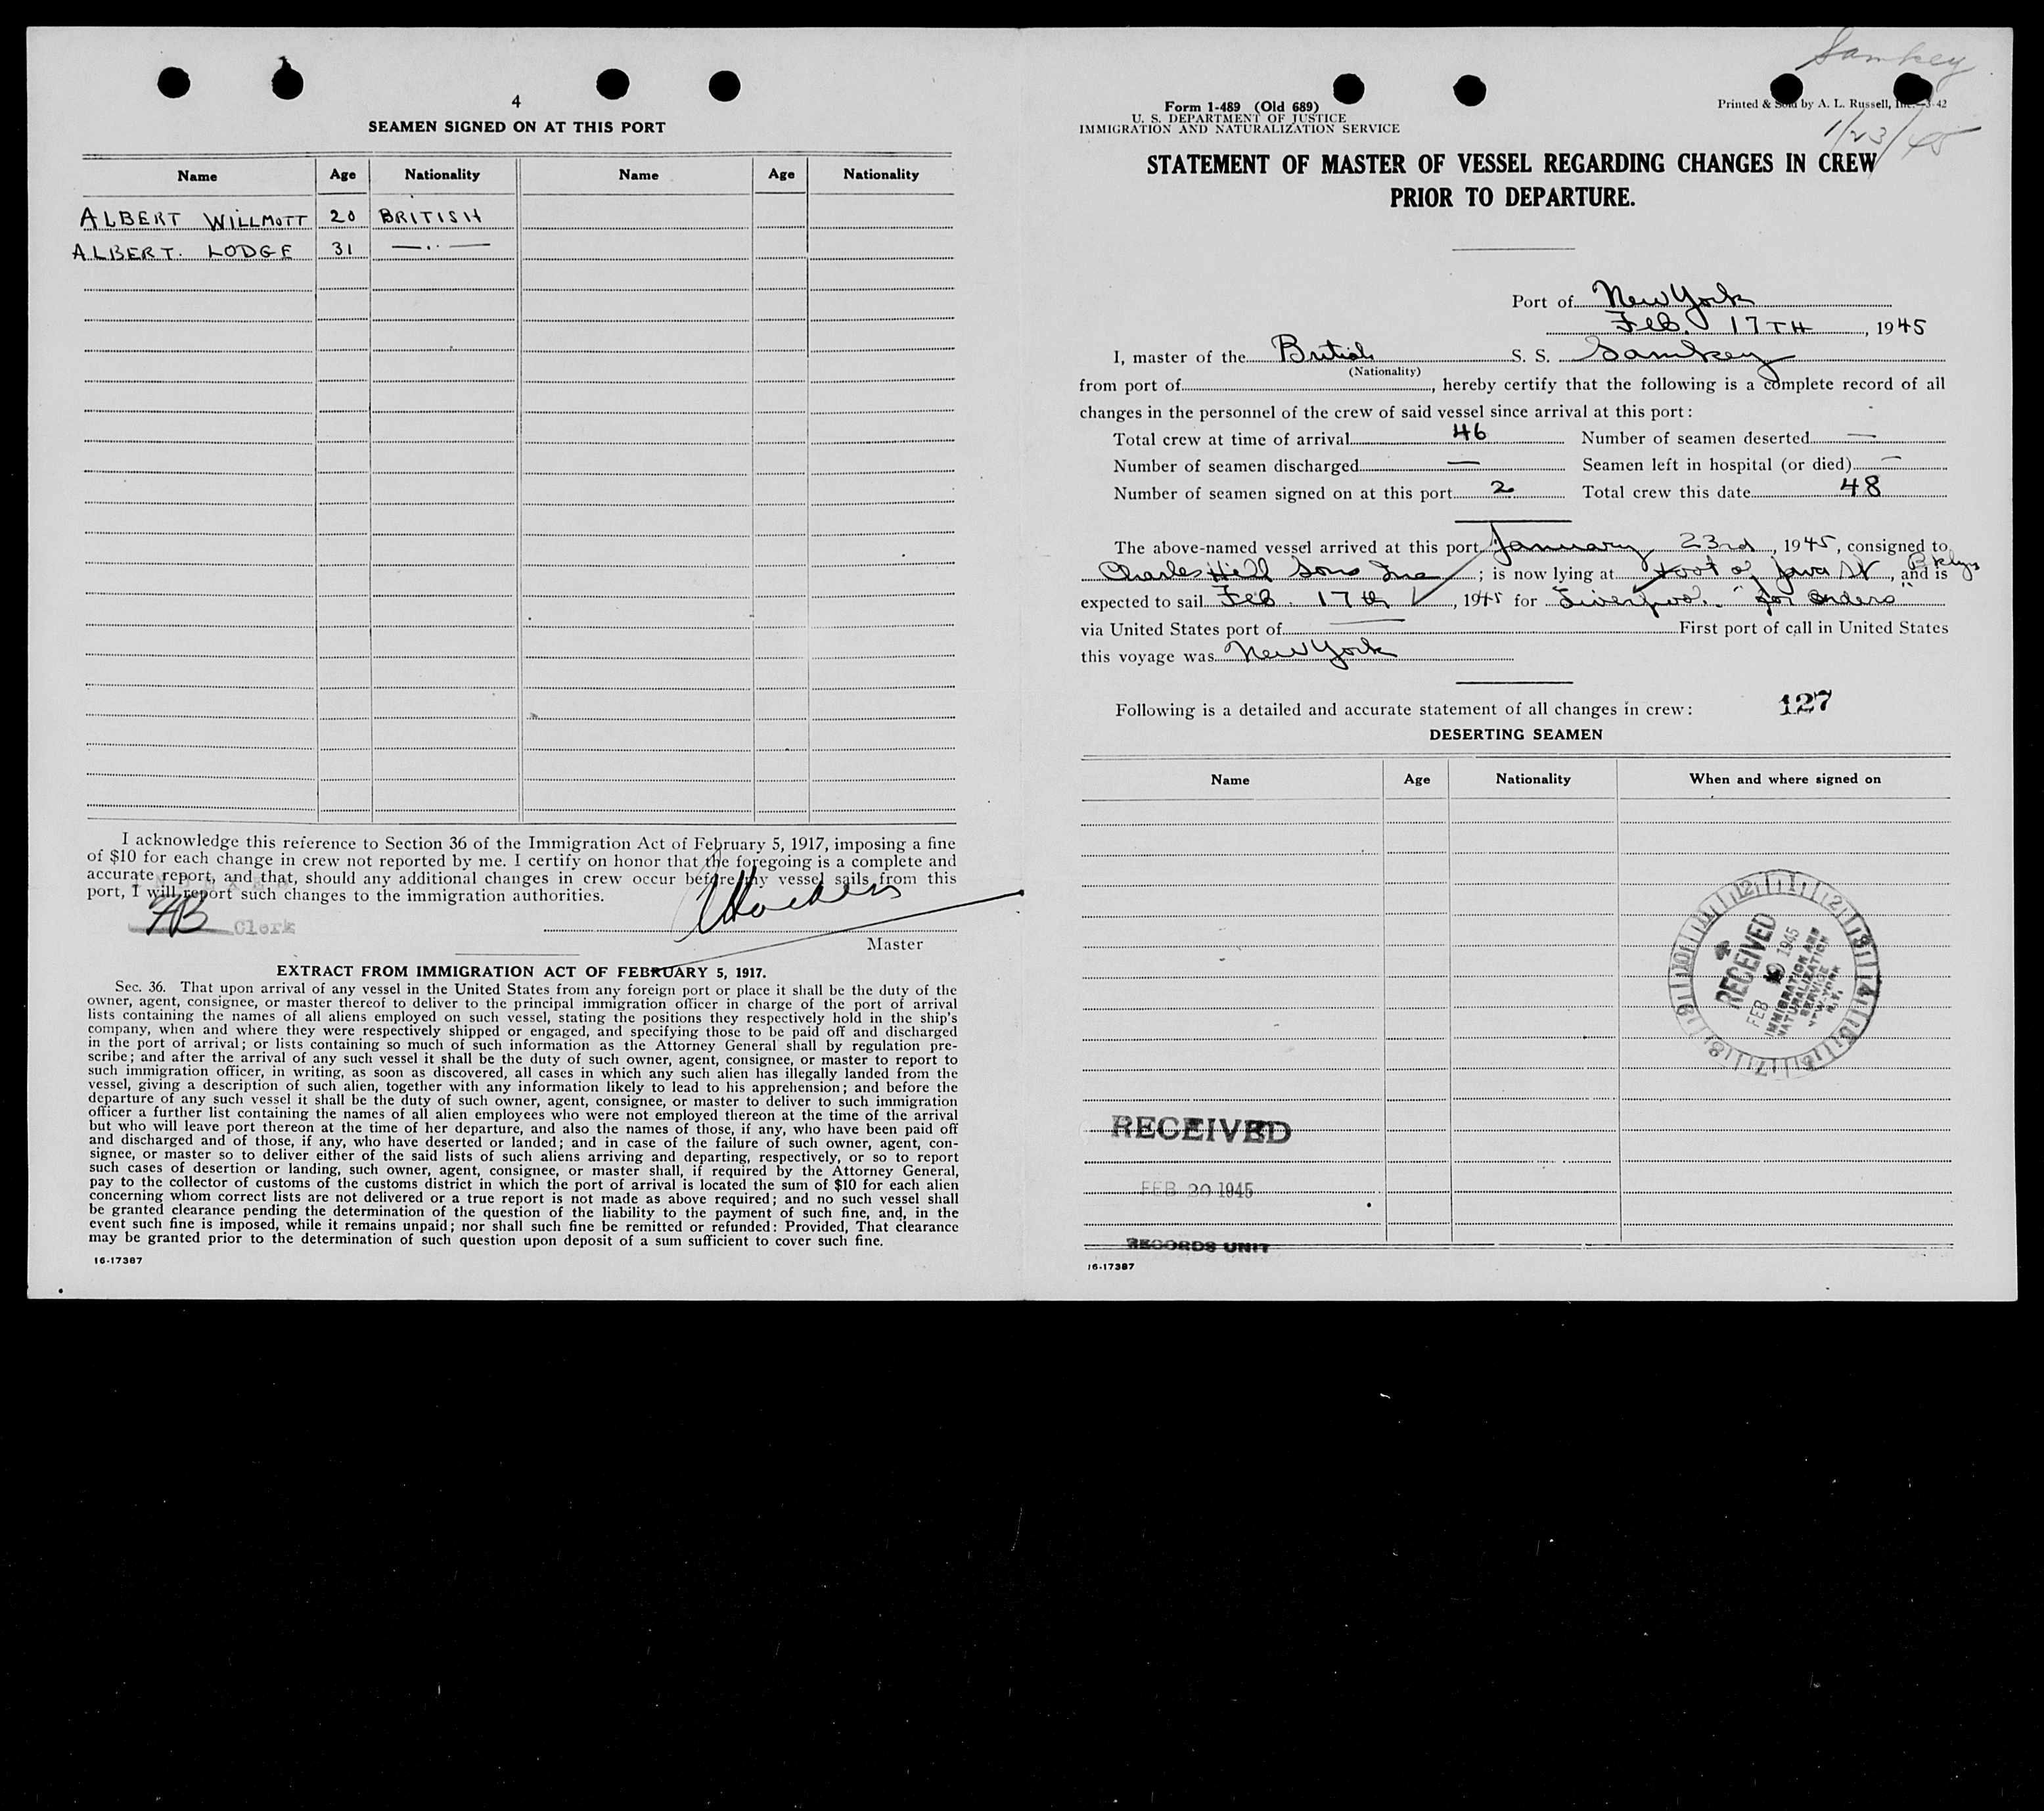 4
SEAMEN SIGNED ON AT THIS PORT
Name Age Nationality Name Age Nationality
ALBERT WILLMOTT 20 BRITISH
ALBERT. LODGE 31 —..—
I acknowledge this reference to Section 36 of the Immigration Act of February 5, 1917, imposing a fine
of $10 for each change in crew not reported by me. I certify on honor that the foregoing is a complete and
accurate report, and that, should any additional changes in crew occur before my vessel sails from this
port, I will report such changes to the immigration authorities.
Clerk
Master
EXTRACT FROM IMMIGRATION ACT OF FEBRUARY 5, 1917.
Sec. 36. That upon arrival of any vessel in the United States from any foreign port or place it shall be the duty of the
owner, agent, consignee, or master thereof to deliver to the principal immigration officer in charge of the port of arrival
lists containing the names of all aliens employed on such vessel, stating the positions they respectively hold in the ship's
company, when and where they were respectively shipped or engaged, and specifying those to be paid off and discharged
in the port of arrival; or lists containing so much of such information as the Attorney General shall by regulation pre-
scribe; and after the arrival of any such vessel it shall be the duty of such owner, agent, consignee, or master to report to
such immigration officer, in writing, as soon as discovered, all cases in which any such alien has illegally landed from the
vessel, giving a description of such alien, together with any information likely to lead to his apprehension; and before the
departure of any such vessel it shall be the duty of such owner, agent, consignee, or master to deliver to such immigration
officer a further list containing the names of all alien employees who were not employed thereon at the time of the arrival
but who will leave port thereon at the time of her departure, and also the names of those, if any, who have been paid off
and discharged and of those, if any, who have deserted or landed; and in case of the failure of such owner, agent, con-
signee, or master so to deliver either of the said lists of such aliens arriving and departing, respectively, or so to report
such cases of desertion or landing, such owner, agent, consignee, or master shall, if required by the Attorney General,
pay to the collector of customs of the customs district in which the port of arrival is located the sum of $10 for each alien
concerning whom correct lists are not delivered or a true report is not made as above required; and no such vessel shall
be granted clearance pending the determination of the question of the liability to the payment of such fine, and, in the
event such fine is imposed, while it remains unpaid; nor shall such fine be remitted or refunded: Provided, That clearance
may be granted prior to the determination of such question upon deposit of a sum sufficient to cover such fine.
16-17387
Samkey
1/23/45
Form 1-489 (Old 689)
U. S. DEPARTMENT OF JUSTICE
IMMIGRATION AND NATURALIZATION SERVICE
Printed & Sold by A. L. Russell, Inc.—3-42
STATEMENT OF MASTER OF VESSEL REGARDING CHANGES IN CREW
PRIOR TO DEPARTURE.
Port of New York
Feb. 17TH, 1945
I, master of the British S. S. Samkey
(Nationality)
from port of , hereby certify that the following is a complete record of all
changes in the personnel of the crew of said vessel since arrival at this port:
Total crew at time of arrival 46 Number of seamen deserted —
Number of seamen discharged — Seamen left in hospital (or died) —
Number of seamen signed on at this port 2 Total crew this date 48
The above-named vessel arrived at this port January 23rd, 1945, consigned to
Charles Hill Sons Inc; is now lying at foot of Java St Bklyn, and is
expected to sail Feb. 17th, 1945 for Liverpool "for orders"
via United States port of — First port of call in United States
this voyage was New York
Following is a detailed and accurate statement of all changes in crew: 127
DESERTING SEAMEN
Name Age Nationality When and where signed on
RECEIVED
FEB 1945
IMMIGRATION AND
NATURALIZATION
SERVICE
NEW YORK
N.Y.
RECEIVED
FEB 20 1945
RECORDS UNIT
16-17387